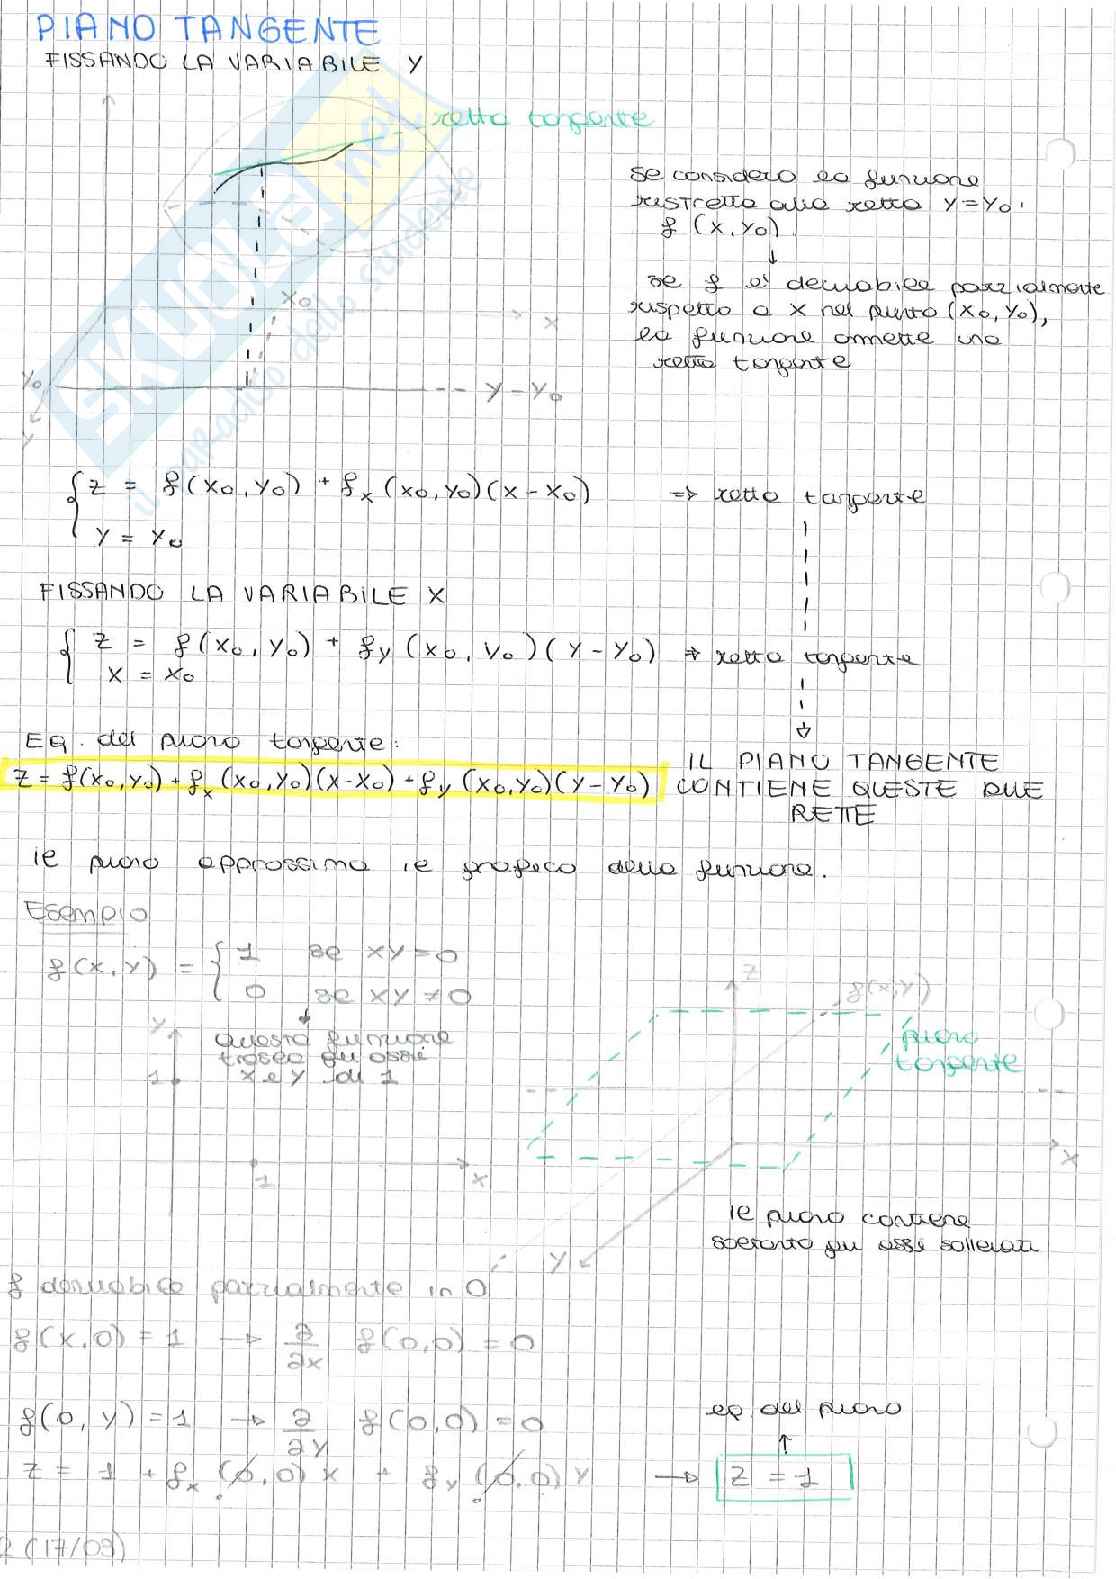 PIANO TANGENTE
FISSANDO LA VARIABILE Y
retta tangente
se considero la funzione
ristretta alla retta y=y₀.
f (x,y₀)
↓
se f è derivabile parzialmente
rispetto a x nel punto (x₀,y₀),
la funzione ammette una
retta tangente
x₀
x
y₀
y-y₀
y
{ z = f(x₀,y₀) + fₓ (x₀,y₀)(x-x₀) ⇒ retta tangente
y = y₀
FISSANDO LA VARIABILE X
{ z = f(x₀,y₀) + fy (x₀,y₀)(y-y₀) ⇒ retta tangente
x = x₀
EQ. del piano tangente:
z = f(x₀,y₀) + fₓ (x₀,y₀)(x-x₀) + fy (x₀,y₀)(y-y₀)
IL PIANO TANGENTE
CONTIENE QUESTE DUE
RETTE
il piano approssima il grafico della funzione.
Esempio
f(x,y) = { 1 se xy=0
0 se xy≠0
↓
questa funzione
trasla gli assi
x e y di 1
y
1
1
x
z
f(x,y)
piano
tangente
x
y
il piano contiene
soltanto gli assi sollevati
f derivabile parzialmente in 0
f(x,0) = 1 → ∂/∂x f(0,0) = 0
f(0,y) = 1 → ∂/∂y f(0,0) = 0
eq del piano
↑
z = 1 + fₓ (0,0) x + fy (0,0) y → z = 1
(17/03)
SKUOLA.net